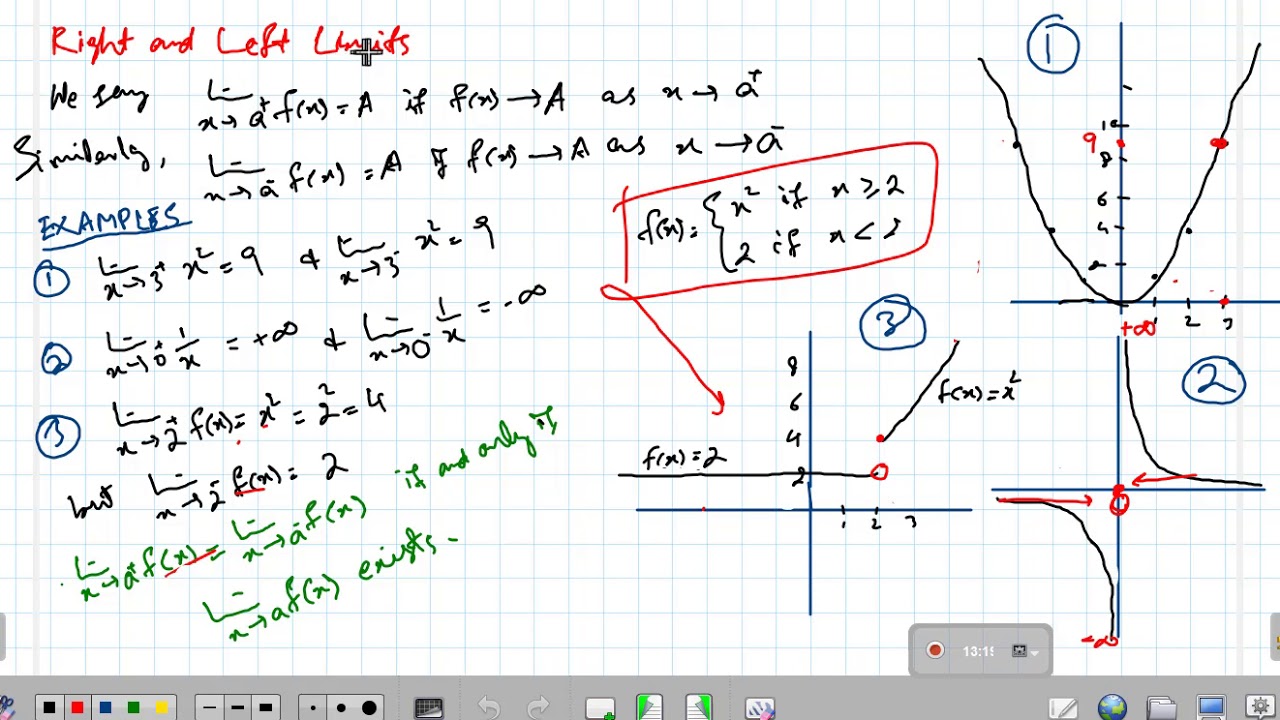 Right and Left Limits
We say Lim x→a⁺ f(x) = A if f(x) → A as x → a⁺
Similarly, Lim x→a⁻ f(x) = A if f(x) → A as x → a⁻
EXAMPLES
① Lim x→3⁺ x² = 9 & Lim x→3⁻ x² = 9
② Lim x→0⁺ 1/x = +∞ & Lim x→0⁻ 1/x = -∞
③ Lim x→2⁺ f(x) = x² = 2² = 4
but Lim x→2⁻ f(x) = 2
Lim x→a⁺ f(x) = Lim x→a⁻ f(x) if and only if
Lim x→a f(x) exists.
f(x) = { x² if x ≥ 2
2 if x < 2
①
10
9
8
6
4
2
1 2 3
③
8
6
4
2
f(x) = x²
f(x) = 2
1 2 3
②
+∞
-∞
13:19